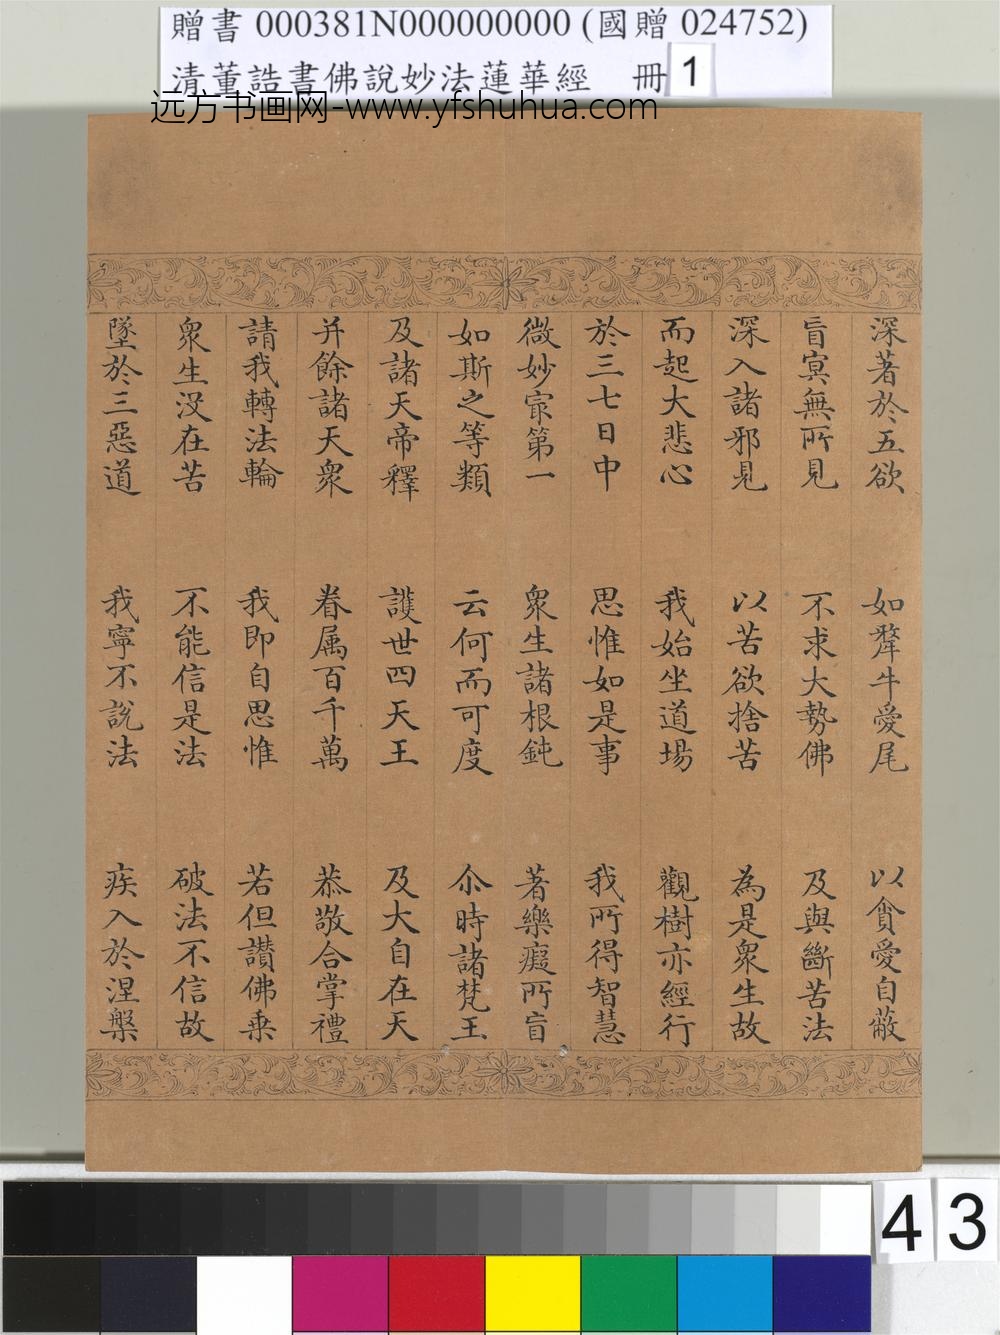 贈書 000381N000000000 (國贈 024752)
清董誥書佛說妙法蓮華經 冊 1
远方书画网-www.yfshuhua.com
深著於五欲 如犛牛愛尾 以貪愛自蔽
盲冥無所見 不求大勢佛 及與斷苦法
深入諸邪見 以苦欲捨苦 為是衆生故
而起大悲心 我始坐道場 觀樹亦經行
於三七日中 思惟如是事 我所得智慧
微妙冣第一 衆生諸根鈍 著樂癡所盲
如斯之等類 云何而可度 尒時諸梵王
及諸天帝釋 護世四天王 及大自在天
并餘諸天衆 眷属百千萬 恭敬合掌禮
請我轉法輪 我即自思惟 若但讃佛乗
衆生没在苦 不能信是法 破法不信故
墜於三惡道 我寧不說法 疾入於涅槃
43